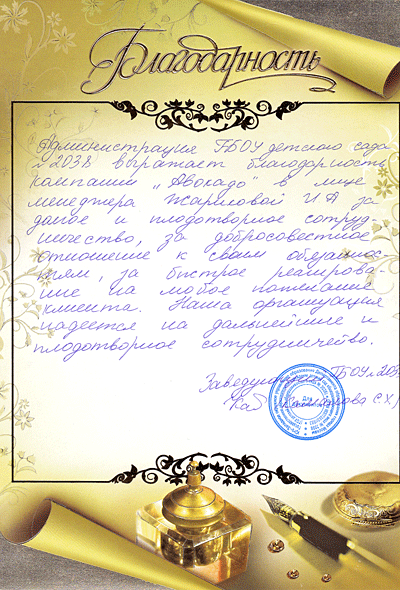 Благодарность
Администрация ГБОУ детского сада
№2038 выражает благодарность
компании „Авокадо" в лице
менеджера Жариловой И.А за
долгое и плодотворное сотруд-
ничество, за добросовестное
отношение к своим обязаннос-
тям, за быстрое реагирова-
ние на любое пожелание
клиента. Наша организация
надеется на дальнейшие и
плодотворное сотрудничество.
Заведующая ГБОУ №2038
С.Х.